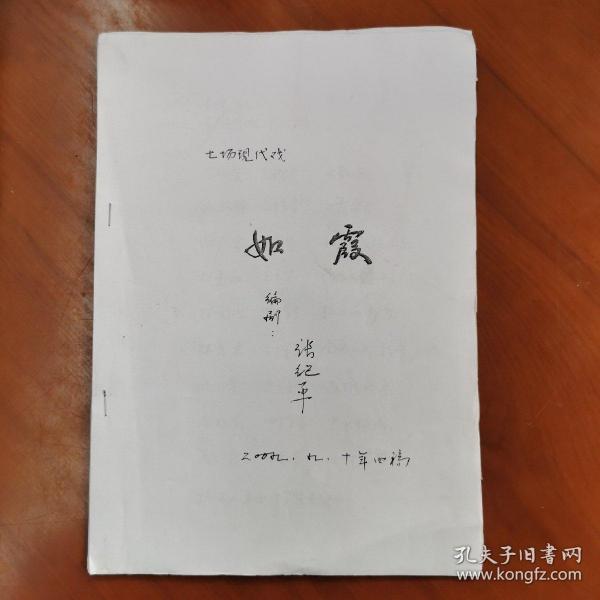 七场现代戏
如霞
编剧：
张纪平
二〇〇九.九.十年四稿
孔夫子旧书网
www.kongfz.com